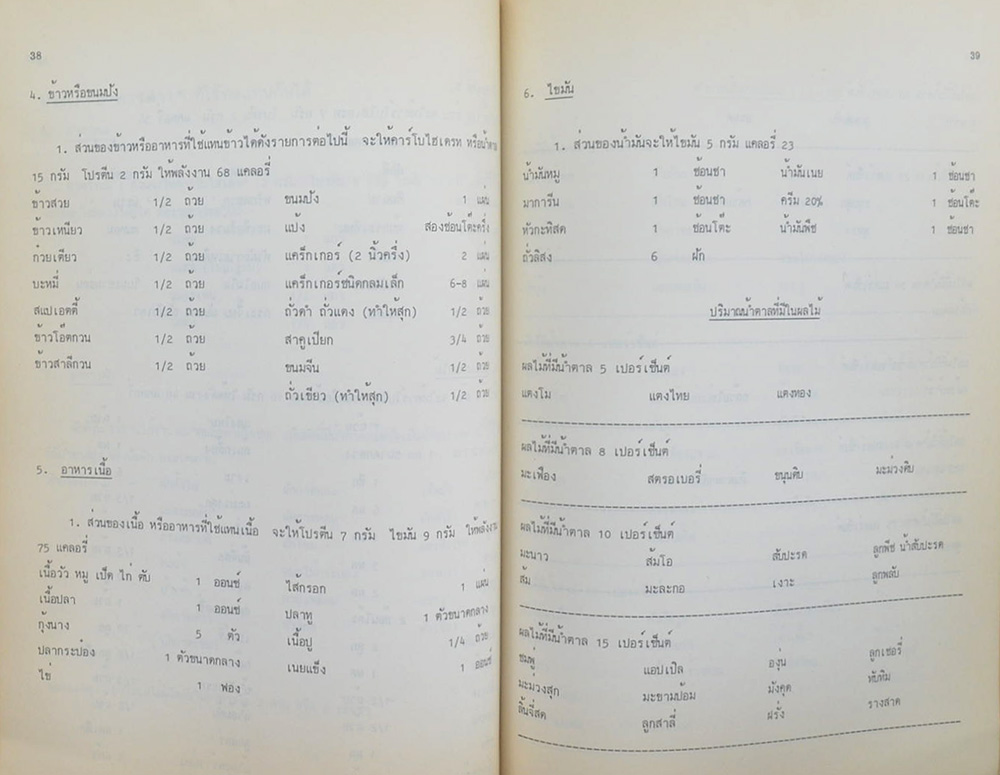 38
4. ข้าวหรือขนมปัง
1. ส่วนของข้าวหรืออาหารที่ใช้แทนข้าวได้ดังรายการต่อไปนี้ จะให้คาร์โบไฮเดรท หรือน้ำตาล
15 กรัม โปรตีน 2 กรัม ให้พลังงาน 68 แคลอรี่
ข้าวสวย 1/2 ถ้วย ขนมปัง 1 แผ่น
ข้าวเหนียว 1/2 ถ้วย แป้ง สองช้อนโต๊ะครึ่ง
ก๋วยเตี๋ยว 1/2 ถ้วย แคร็กเกอร์ (2 นิ้วครึ่ง) 2 แผ่น
บะหมี่ 1/2 ถ้วย แคร็กเกอร์ชนิดกลมเล็ก 6-8 แผ่น
สแปเอตตี้ 1/2 ถ้วย ถั่วดำ ถั่วแดง (ทำให้สุก) 1/2 ถ้วย
ข้าวโอ๊ตกวน 1/2 ถ้วย สาคูเปียก 3/4 ถ้วย
ข้าวสาลีกวน 1/2 ถ้วย ขนมจีน 1/2 ถ้วย
ถั่วเขียว (ทำให้สุก) 1/2 ถ้วย
5. อาหารเนื้อ
1. ส่วนของเนื้อ หรืออาหารที่ใช้แทนเนื้อ จะให้โปรตีน 7 กรัม ไขมัน 9 กรัม ให้พลังงาน
75 แคลอรี่
เนื้อวัว หมู เป็ด ไก่ ตับ 1 ออนซ์ ไส้กรอก 1 แผ่น
เนื้อปลา 1 ออนซ์ ปลาทู 1 ตัวขนาดกลาง
กุ้งนาง 5 ตัว เนื้อปู 1/4 ถ้วย
ปลากระป๋อง 1 ตัวขนาดกลาง เนยแข็ง 1 ออนซ์
ไข่ 1 ฟอง
39
6. ไขมัน
1. ส่วนของน้ำมันจะให้ไขมัน 5 กรัม แคลอรี่ 23
น้ำมันหมู 1 ช้อนชา น้ำมันเนย 1 ช้อนชา
มาการีน 1 ช้อนชา ครีม 20% 1 ช้อนโต๊ะ
หัวกะทิสด 1 ช้อนโต๊ะ น้ำมันพืช 1 ช้อนชา
ถั่วลิสง 6 ฝัก
ปริมาณน้ำตาลที่มีในผลไม้
ผลไม้ที่มีน้ำตาล 5 เปอร์เซ็นต์
แตงโม แตงไทย แตงทอง
ผลไม้ที่มีน้ำตาล 8 เปอร์เซ็นต์
มะเฟือง สตรอเบอรี่ ขนุนดิบ มะม่วงดิบ
ผลไม้ที่มีน้ำตาล 10 เปอร์เซ็นต์
มะนาว ส้มโอ สับปะรด ลูกพีช น้ำสับปะรด
ส้ม มะละกอ เงาะ ลูกพลับ
ผลไม้ที่มีน้ำตาล 15 เปอร์เซ็นต์
ชมพู่ แอปเปิล องุ่น ลูกเชอรี่
มะม่วงสุก มะขามป้อม มังคุด ทับทิม
ลิ้นจี่สด ลูกสาลี่ ฝรั่ง รางสาด